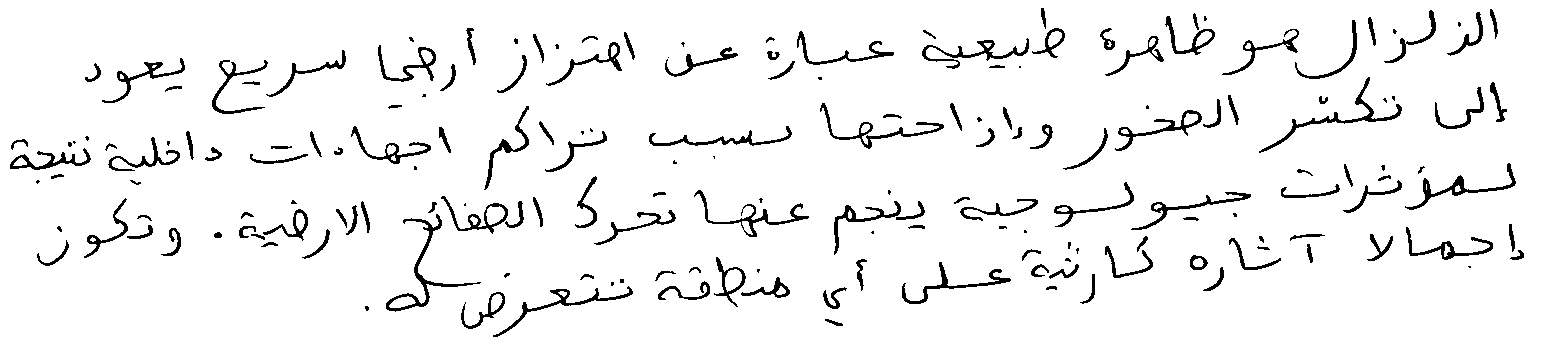 الزلزال هو ظاهرة طبيعية عبارة عن اهتزاز أرضي سريع يعود
إلى تكسّر الصخور وإزاحتها بسبب تراكم اجهادات داخلية نتيجة
لمؤثرات جيولوجية ينجم عنها تحرك الصفائح الارضية. وتكون
إجمالا آثاره كارثية على أي منطقة تتعرض له.